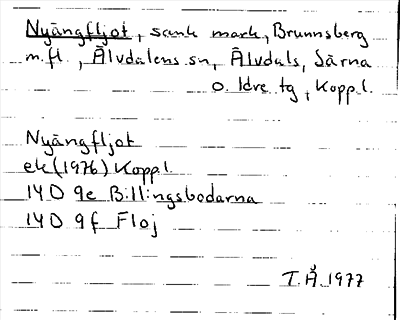 Nyängfljot, sank mark, Brunnsberg
m.fl., Älvdalens sn, Älvdals, Särna
o. Idre tg, Koppl.
Nyängfljot
ek (1976) Koppl.
14D 9e Billingsbodarna
14D 9f Floj
T.Å. 1977